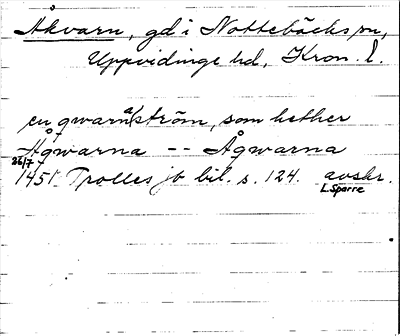 Åkvarn, gd i Nottebäcks sn,
Uppvidinge hd, Kron. l.
en qwarnaström, som hether
Ågwarna -- Ågwarna
26/7
1451 Trolles jb bil. s. 124. avskr.
L. Sparre